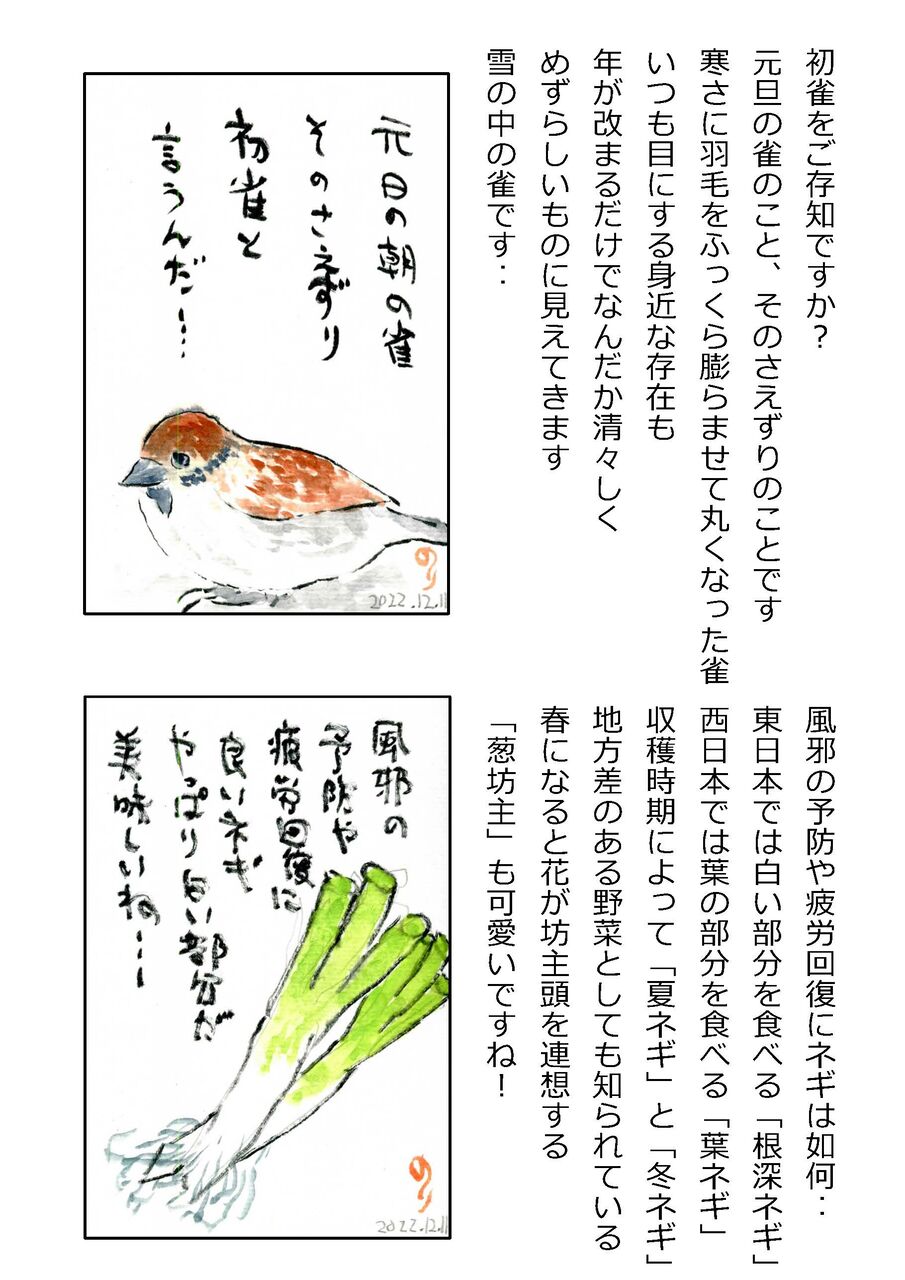 初雀をご存知ですか？
元旦の雀のこと、そのさえずりのことです
寒さに羽毛をふっくら膨らませて丸くなった雀
いつも目にする身近な存在も
年が改まるだけでなんだか清々しく
めずらしいものに見えてきます
雪の中の雀です‥
元日の朝の雀
そのさえずり
初雀と
言うんだ……
のり
2022.12.11
風邪の予防や疲労回復にネギは如何‥
東日本では白い部分を食べる「根深ネギ」
西日本では葉の部分を食べる「葉ネギ」
収穫時期によって「夏ネギ」と「冬ネギ」
地方差のある野菜としても知られている
春になると花が坊主頭を連想する
「葱坊主」も可愛いですね！
風邪の
予防や
疲労回復に
良いネギ
やっぱり白い部分が
美味しいね……
のり
2022.12.11